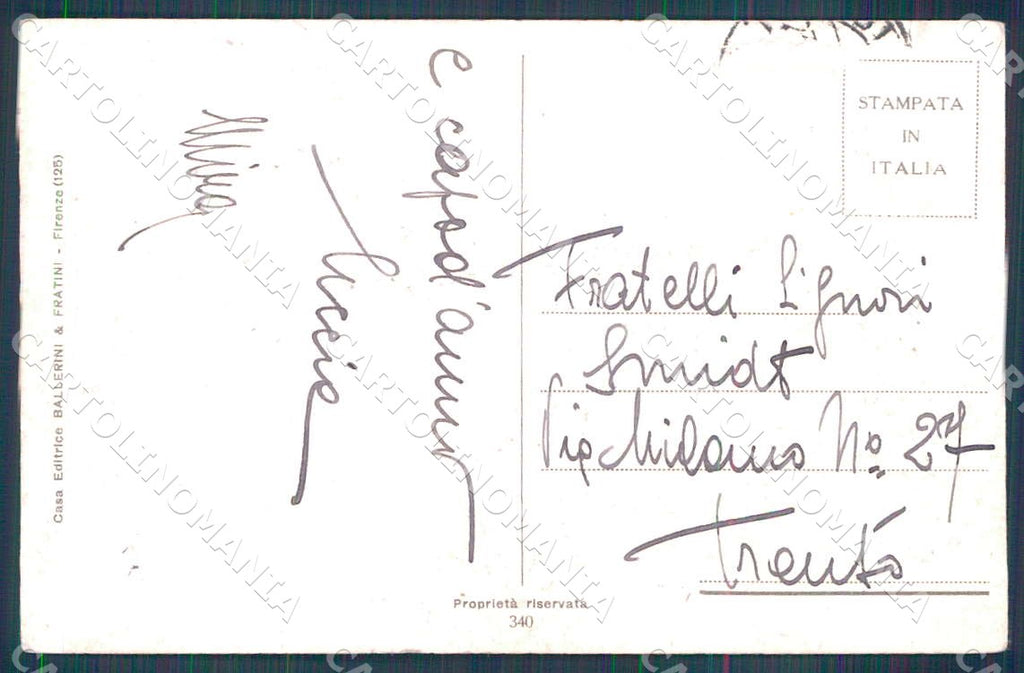 e capod'anno
Lucia
Mira
Casa Editrice BALLERINI & FRATINI - Firenze (125)
STAMPATA
IN
ITALIA
Fratelli Signori
Smidt
Via Milano No 27
Trento
Proprietà riservata
340
CARTOLINOMANIA